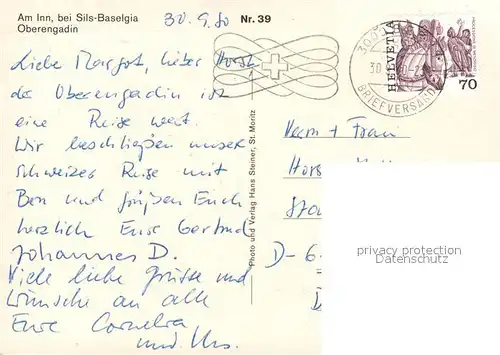 Am Inn, bei Sils-Baselgia
Oberengadin
30.9.80
Nr. 39
Liebe Margot, lieber Horst
das Oberengadin ist
eine Reise wert.
Wir beschließen unser
schweizer Reise mit
Bern und grüßen Euch
herzlich Eure Gertrud
Johannes D.
Viele liebe Grüsse und
Wünsche an alle
Eure Cornelia
und Urs.
Photo und Verlag Hans Steiner, St. Moritz
30
BRIEFVERSAND
HELVETIA
70
Herrn + Frau
Horst
D-6
privacy protection
Datenschutz